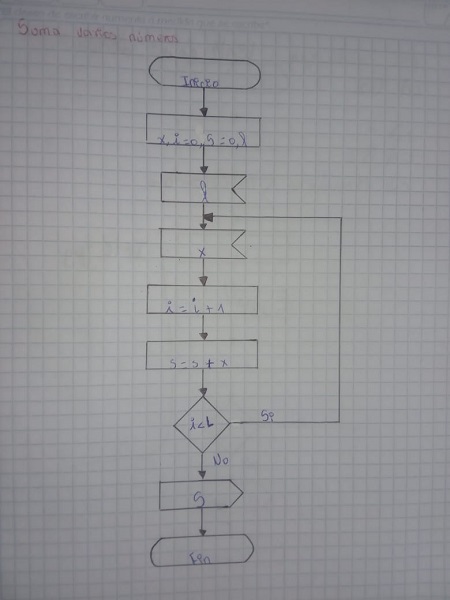 Suma varios números
Inicio
x, i=0, S=0, l
l
x
i = i + 1
s = s + x
i < L
Si
No
S
Fin